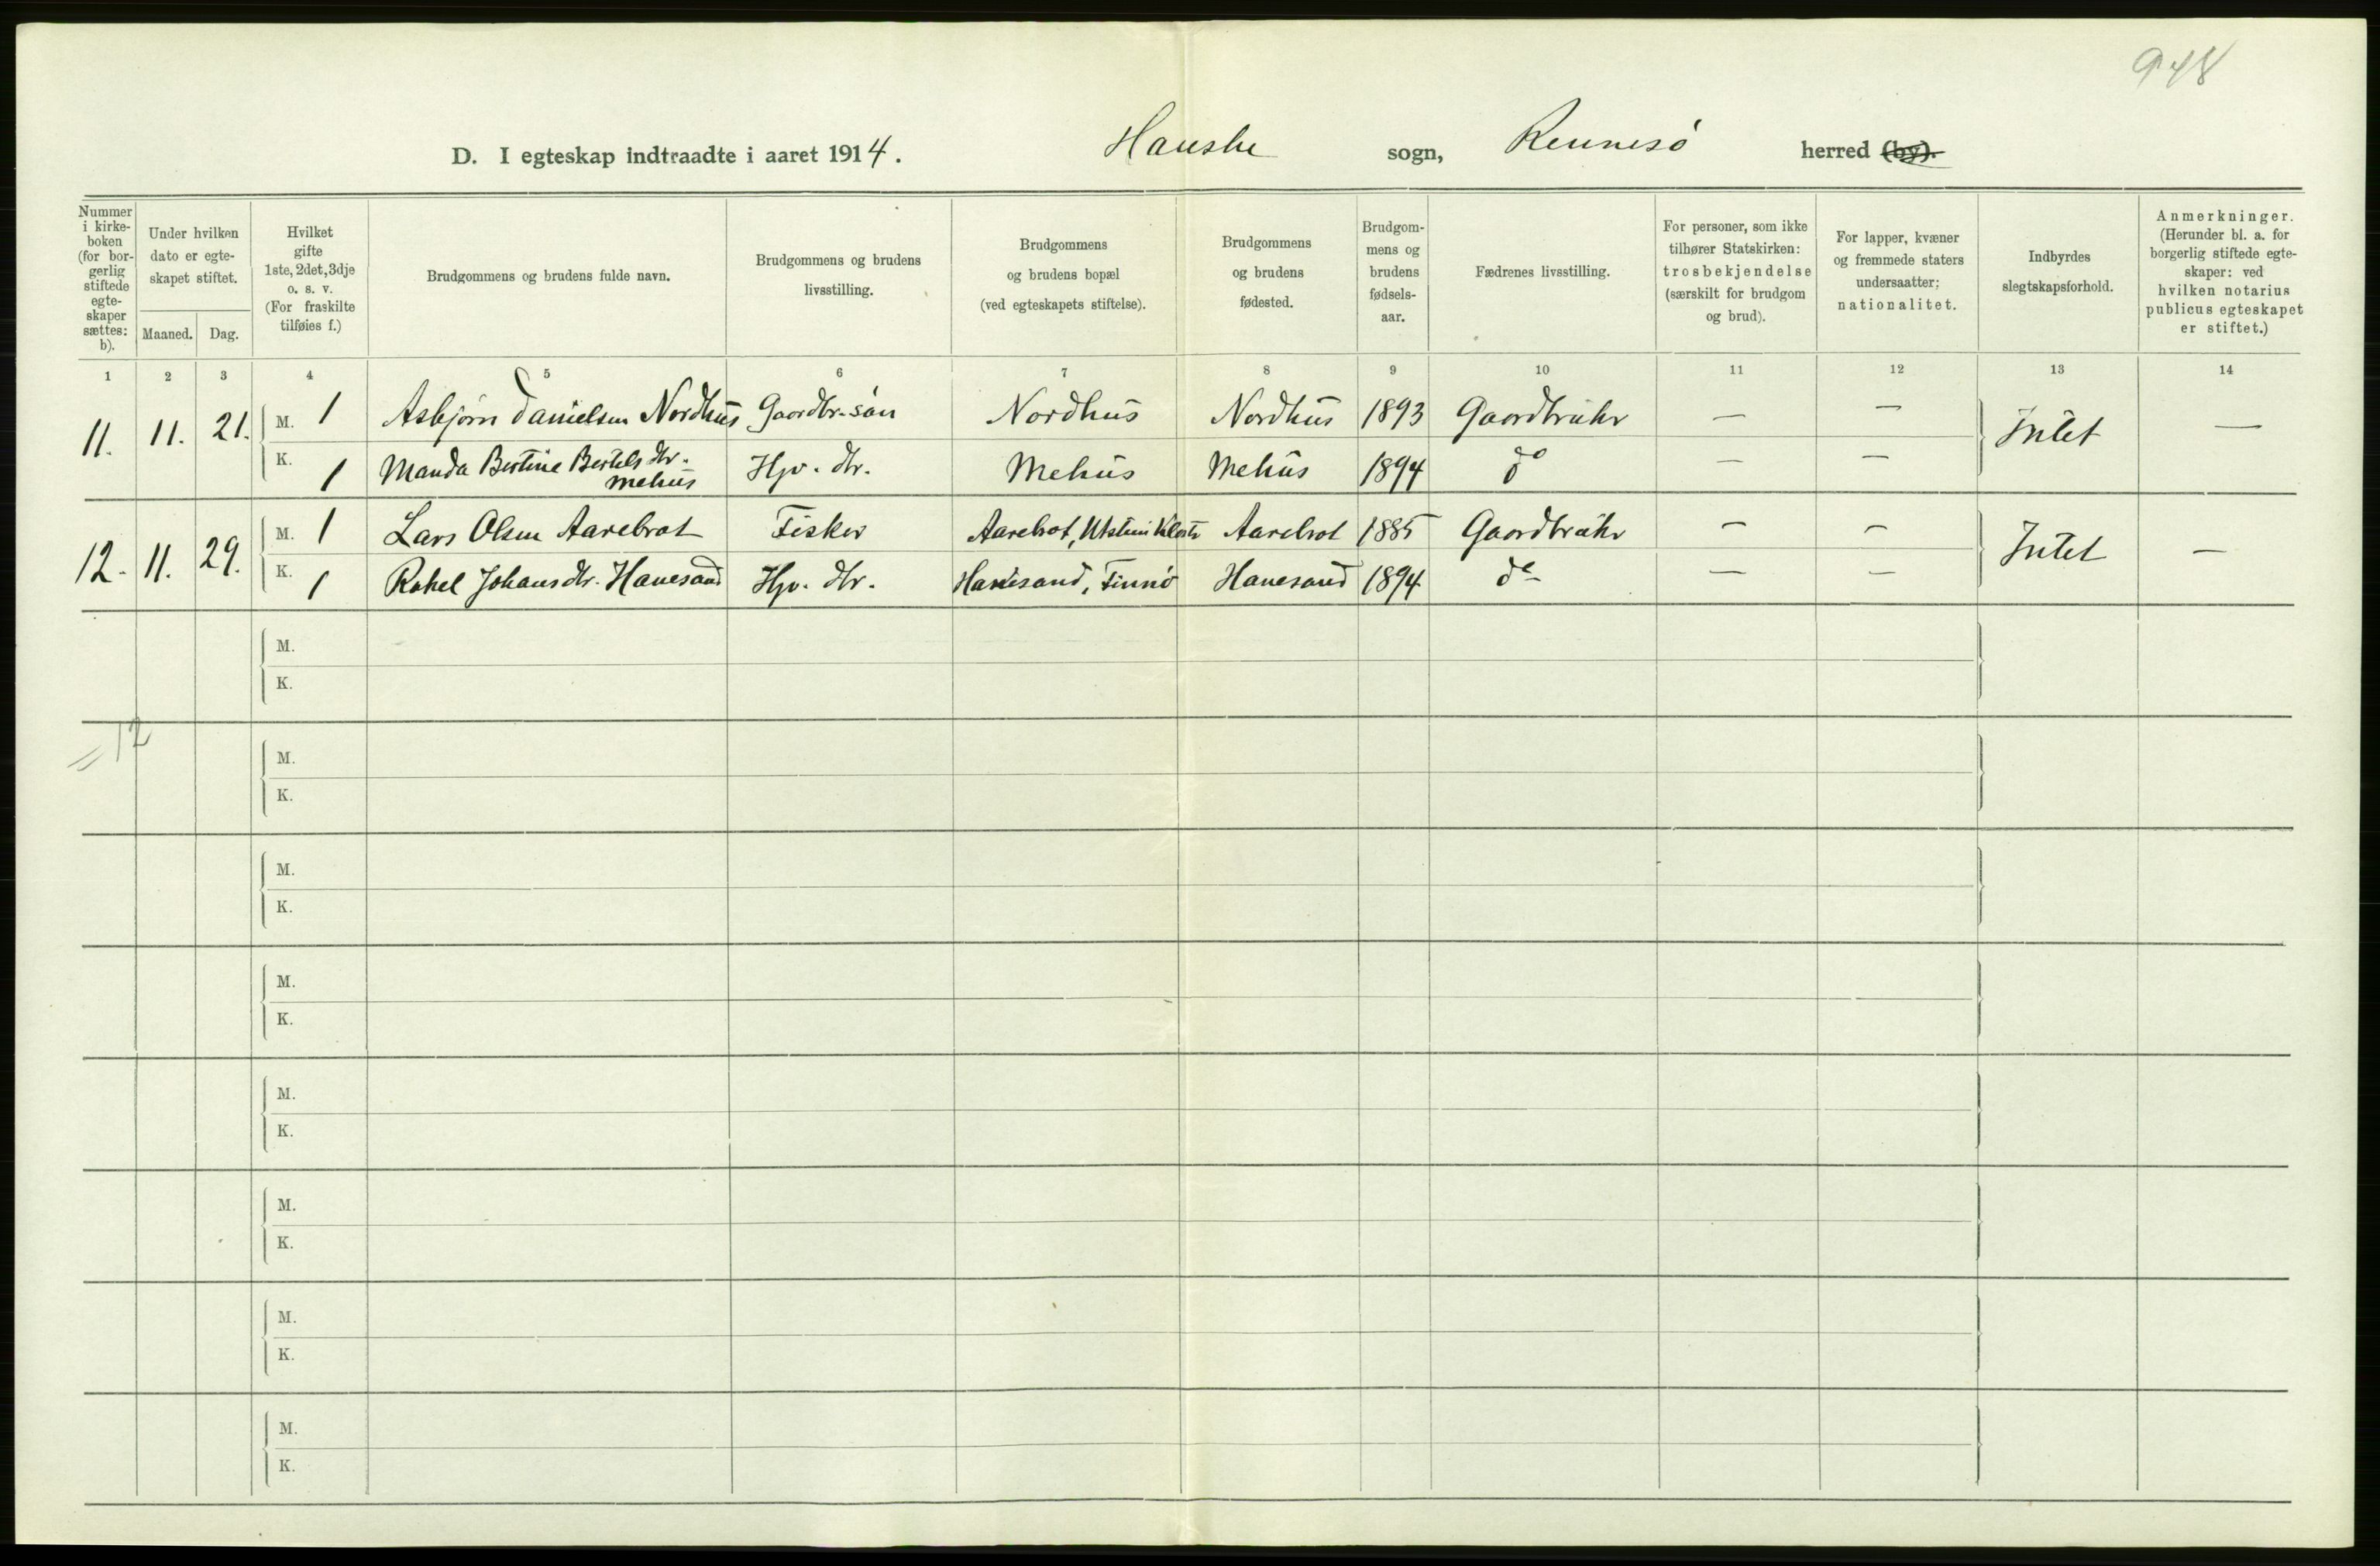 948
D. I egteskap indtraadte i aaret 1914. Hauske sogn, Rennesö herred (by).
Nummer i kirkeboken (for borgerlig stiftede egteskaper sættes: b).
Under hvilken dato er egteskapet stiftet.
Maaned. Dag.
Hvilket gifte 1ste, 2det, 3dje o. s. v. (For fraskilte tilføies f.)
Brudgommens og brudens fulde navn.
Brudgommens og brudens livsstilling.
Brudgommens og brudens bopæl (ved egteskapets stiftelse).
Brudgommens og brudens fødested.
Brudgommens og brudens fødselsaar.
Fædrenes livsstilling.
For personer, som ikke tilhører Statskirken: trosbekjendelse (særskilt for brudgom og brud).
For lapper, kvæner og fremmede staters undersaatter; nationalitet.
Indbyrdes slegtskapsforhold.
Anmerkninger. (Herunder bl. a. for borgerlig stiftede egteskaper: ved hvilken notarius publicus egteskapet er stiftet.)
1 2 3 4 5 6 7 8 9 10 11 12 13 14
11. 11. 21. M. 1 Asbjörn Danielsen Nordhus Gaardbr.sön Nordhus Nordhus 1893 Gaardbruker — — Intet —
K. 1 Manda Bertine Bertelsdtr. Mehus Hjv. dtr. Mehus Mehus 1894 do — —
12. 11. 29. M. 1 Lars Olsen Aarebrot Fisker Aarebrot, Utstein Kloster Aarebrot 1885 Gaardbruker — — Intet —
K. 1 Rakel Johansdtr. Hanesand Hjv. dtr. Hanesand, Finnö Hanesand 1894 do — —
M.
K.
= 12
M.
K.
M.
K.
M.
K.
M.
K.
M.
K.
M.
K.
M.
K.